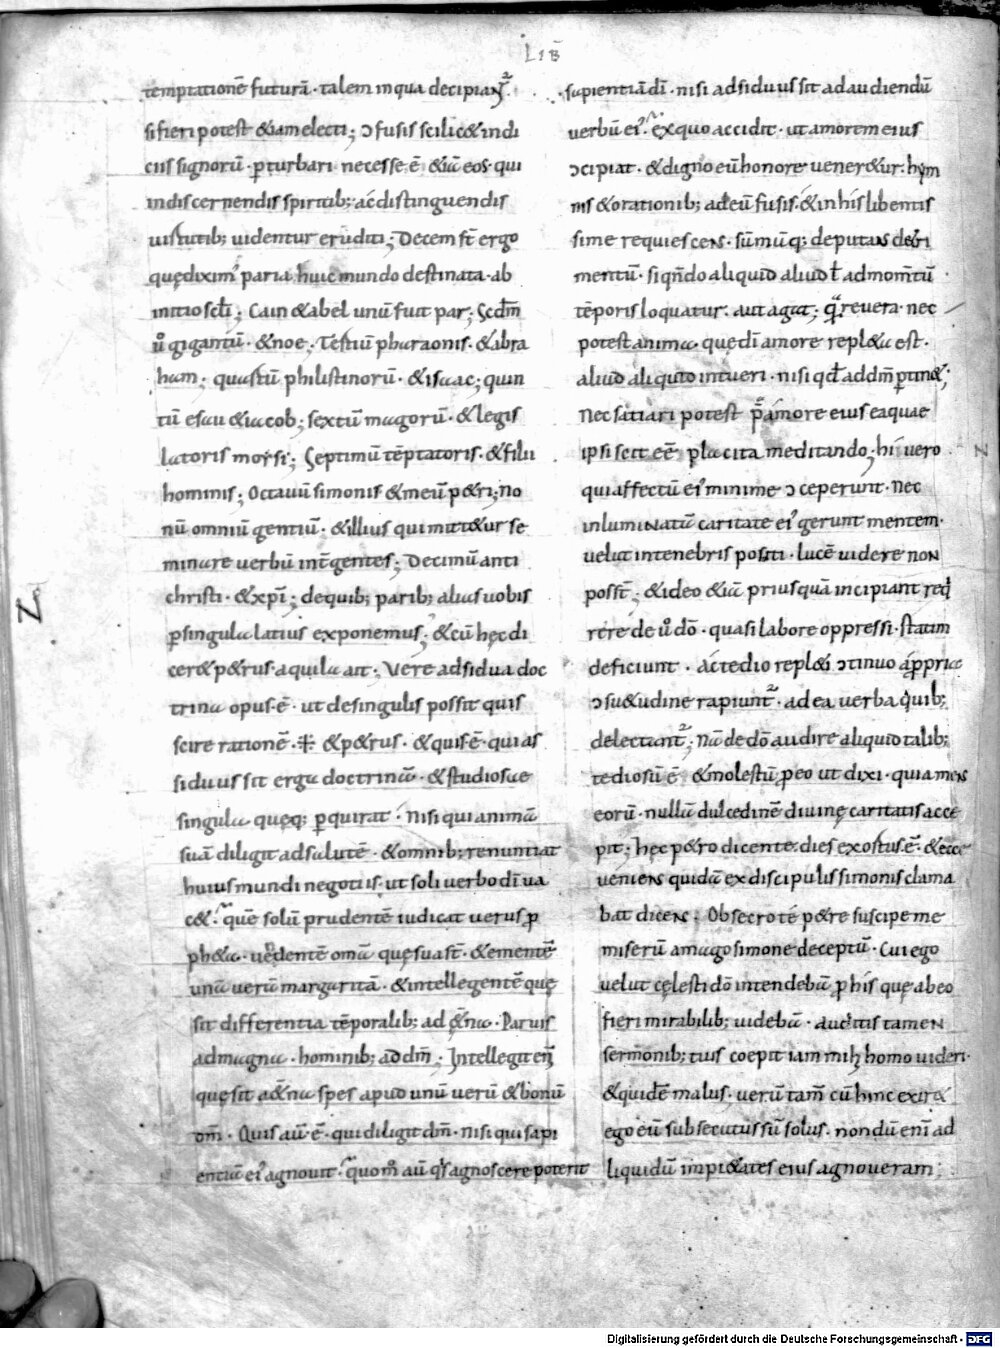 LIB̄
temptationē futurā · talem in qua decipiant̄ ·
si fieri potest & iam electi; ɔfusis scilic& indi
ciis signorū · ꝑturbari necesse ē · &iā eos · qui
in discernendis spiritib; ac distinguendis
uirtutib; uidentur eruditi; Decem st̄ ergo
quę diximꝰ paria huic mundo destinata · ab
initio scl̄i; Cain & abel unū fuit par; Scd̄m
ū gigantū · & noe; Tertiū pharaonis · & abra
ham; quartū philistinorū · & isaac; quin
tū esau & iacob; sextū magorū · & legis
latoris moysi; Septimū tēptatoris · & filii
hominis; Octauū simonis & meū p&ri; No
nū omniū gentiū · & illius qui mitt&ur se
minare uerbū int̄ gentes; Decimū anti
christi · & xp̄i; de quib; parib; alias uobis
ꝑ singula latius exponemus; & cū hęc di
cer& p&rus · aquila ait; Vere adsidua doc
trina opus ē · ut de singulis possit quis
scire rationē · & p&rus · & quis ē · qui as
siduus sit erga doctrinā · & studiosae
singula quęq; ꝑquirat · Nisi qui animā
suā diligit ad salutē · & omnib; renuntiat
huius mundi negotiis · ut soli uerbo dī ua
c& · quē solū prudentē iudicat uerus ꝓ
ph&a · uēdentē om̄a quę sua st̄ · & ementē
unā uerū margaritā · & intellegentē quę
sit differentia tēporalib; ad &̄na · Paruis
ad magna · hominib; ad dm̄; Intellegit eni̅
quę sit a&̄na spes apud unū uerū & bonū
dm̄ · Quis au̅ ē · qui diligit dm̄ · nisi qui sapi
entiā eiꝰ agnouit · quom̊ au̅ q̄s agnoscere poterit
sapientiā dī · nisi adsiduus sit ad audiendū
uerbū eiꝰ · ex quo accidit · ut amorem eius
ɔcipiat · & digno eū honore uener&ur · hym
nis & orationib; ad eū fusis · & in his libentis
sime requiescens · sūmūq; deputans detri
mentū · si qn̄do aliquid aliud ł ad mom̄tū
tēporis loquatur · aut agat; q̄a reuera · nec
potest anima · quę dī amore repl&a est ·
aliud aliquid intueri · nisi qđ ad dm̄ ꝑtin&;
Nec satiari potest p̄ amore eius ea quae
ipsi scit eē placita meditando; hi uero
qui affectū eiꝰ minime ɔceperunt · Nec
inluminatū caritate eiꝰ gerunt mentem ·
uelut in tenebris positi · lucē uidere non
posst̄; & ideo &iā priusquā incipiant req
rere de ū dō · quasi labore oppressi · statim
deficiunt · Ac tedio repl&i ɔtinuo a ꝓpria
ɔsu&udine rapiunt̄ · ad ea uerba quib;
delectant̄; Nā de dō audire aliquid talib;
tediosū ē · & molestū ꝓ eo ut dixi · quia mens
eorū · nullā dulcedinē diuinę caritatis acce
pit; hęc p&ro dicente · dies exortus ē · & ecce
ueniens quidā ex discipulis simonis clama
bat dicens · Obsecro te p&re suscipe me
miserū a mago simone deceptū · Cui ego
uelut cęlesti dō intendebā ꝓ his quę ab eo
fieri mirabilib; uidebā · auditis tamen
sermonib; tuis coepit iam mihi homo uideri ·
& quidē malus · uerū tam̄ cū hinc exir&
ego eū subsecutus sū solus · nondū enī ad
liquidū impi&ates eius agnoueram;
N
Z
Digitalisierung gefördert durch die Deutsche Forschungsgemeinschaft - DFG